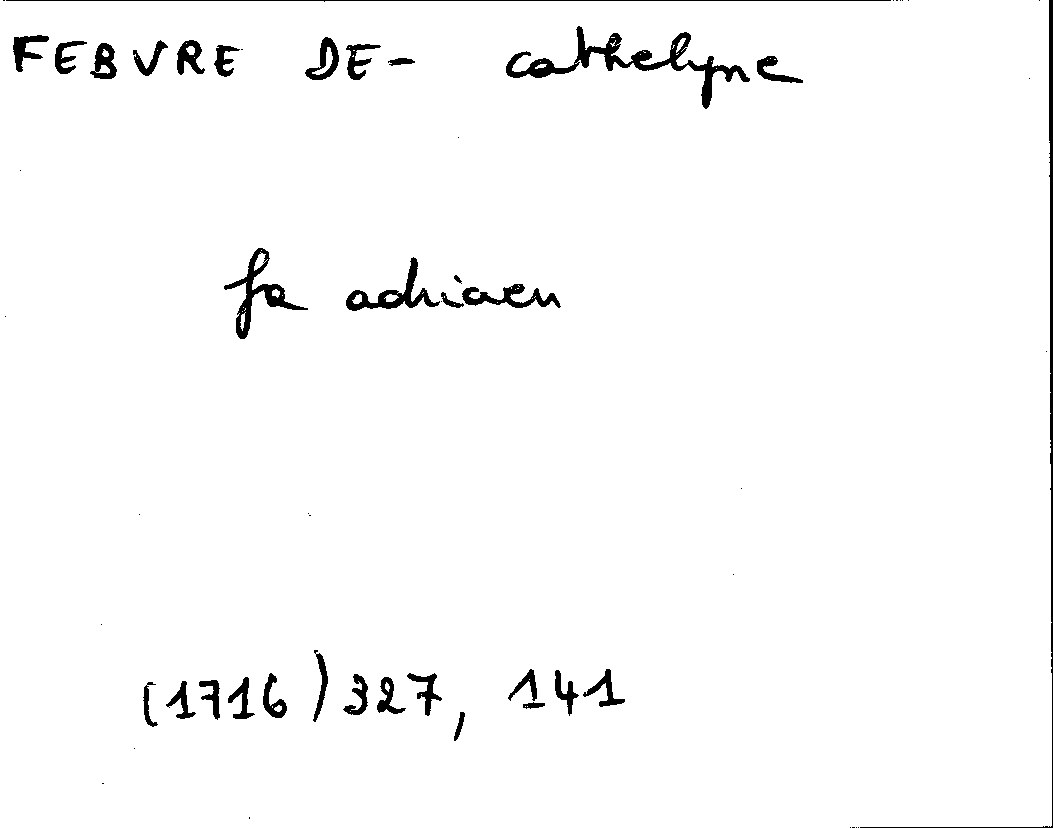 FEBVRE DE- cathelyne
fa adriaen
(1716) 327, 141